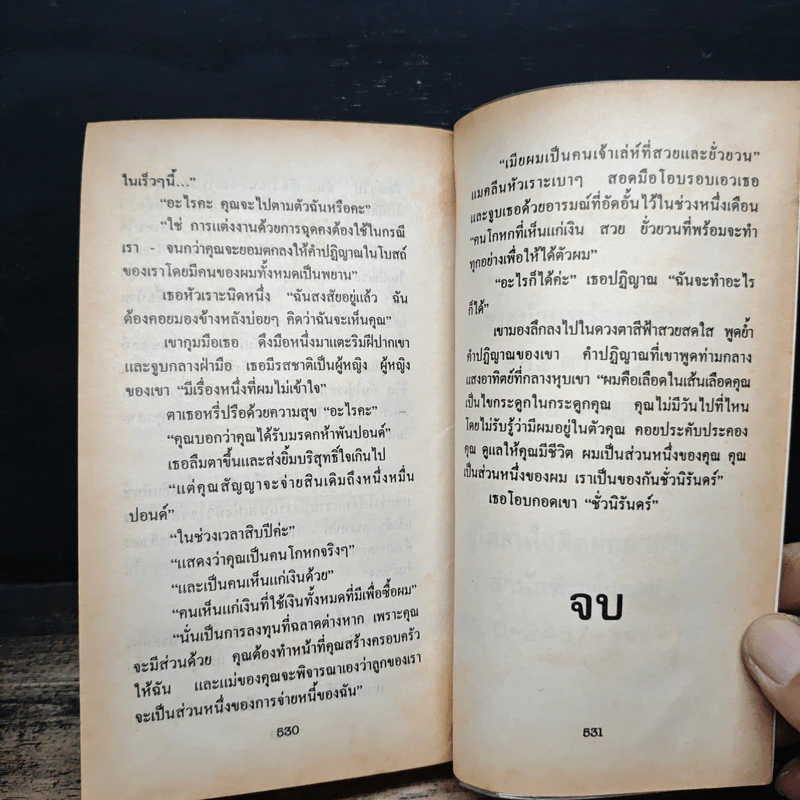 ในเร็วๆนี้...”
“อะไรคะ คุณจะไปตามตัวฉันหรือคะ”
“ใช่ การแต่งงานด้วยการฉุดคงต้องใช้ในกรณี
เรา - จนกว่าคุณจะยอมตกลงให้คำปฏิญาณในโบสถ์
ของเราโดยมีคนของผมทั้งหมดเป็นพยาน”
เธอหัวเราะนิดหนึ่ง “ฉันสงสัยอยู่แล้ว ฉัน
ต้องคอยมองข้างหลังบ่อยๆ คิดว่าฉันจะเห็นคุณ”
เขากุมมือเธอ ดึงมือหนึ่งมาแตะริมฝีปากเขา
และจูบกลางฝ่ามือ เธอมีรสชาติเป็นผู้หญิง ผู้หญิง
ของเขา “มีเรื่องหนึ่งที่ผมไม่เข้าใจ”
ตาเธอหรี่ปรือด้วยความสุข “อะไรคะ”
“คุณบอกว่าคุณได้รับมรดกห้าพันปอนด์”
เธอลืมตาขึ้นและส่งยิ้มบริสุทธิ์ใจเกินไป
“แต่คุณสัญญาจะจ่ายสินเดิมถึงหนึ่งหมื่น
ปอนด์”
“ในช่วงเวลาสิบปีค่ะ”
“แสดงว่าคุณเป็นคนโกหกจริงๆ”
“และเป็นคนเห็นแก่เงินด้วย”
“คนเห็นแก่เงินที่ใช้เงินทั้งหมดที่มีเพื่อซื้อผม”
“นั่นเป็นการลงทุนที่ฉลาดต่างหาก เพราะคุณ
จะมีส่วนด้วย คุณต้องทำหน้าที่คุณสร้างครอบครัว
ให้ฉัน และแม่ของคุณจะพิจารณาเองว่าลูกของเรา
จะเป็นส่วนหนึ่งของการจ่ายหนี้ของฉัน”
530
“เมียผมเป็นคนเจ้าเล่ห์ที่สวยและยั่วยวน”
แมคลีนหัวเราะเบาๆ สอดมือโอบรอบเอวเธอ
และจูบเธอด้วยอารมณ์ที่อัดอั้นไว้ในช่วงหนึ่งเดือน
“คนโกหกที่เห็นแก่เงิน สวย ยั่วยวนที่พร้อมจะทำ
ทุกอย่างเพื่อให้ได้ตัวผม”
“อะไรก็ได้ค่ะ” เธอปฏิญาณ “ฉันจะทำอะไร
ก็ได้”
เขามองลึกลงไปในดวงตาสีฟ้าสวยสดใส พูดย้ำ
คำปฏิญาณของเขา คำปฏิญาณที่เขาพูดท่ามกลาง
แสงอาทิตย์ที่กลางหุบเขา “ผมคือเลือดในเส้นเลือดคุณ
เป็นไขกระดูกในกระดูกคุณ คุณไม่มีวันไปที่ไหน
โดยไม่รับรู้ว่ามีผมอยู่ในตัวคุณ คอยประคับประคอง
คุณ ดูแลให้คุณมีชีวิต ผมเป็นส่วนหนึ่งของคุณ คุณ
เป็นส่วนหนึ่งของผม เราเป็นของกันชั่วนิรันดร์”
เธอโอบกอดเขา “ชั่วนิรันดร์”
จบ
531